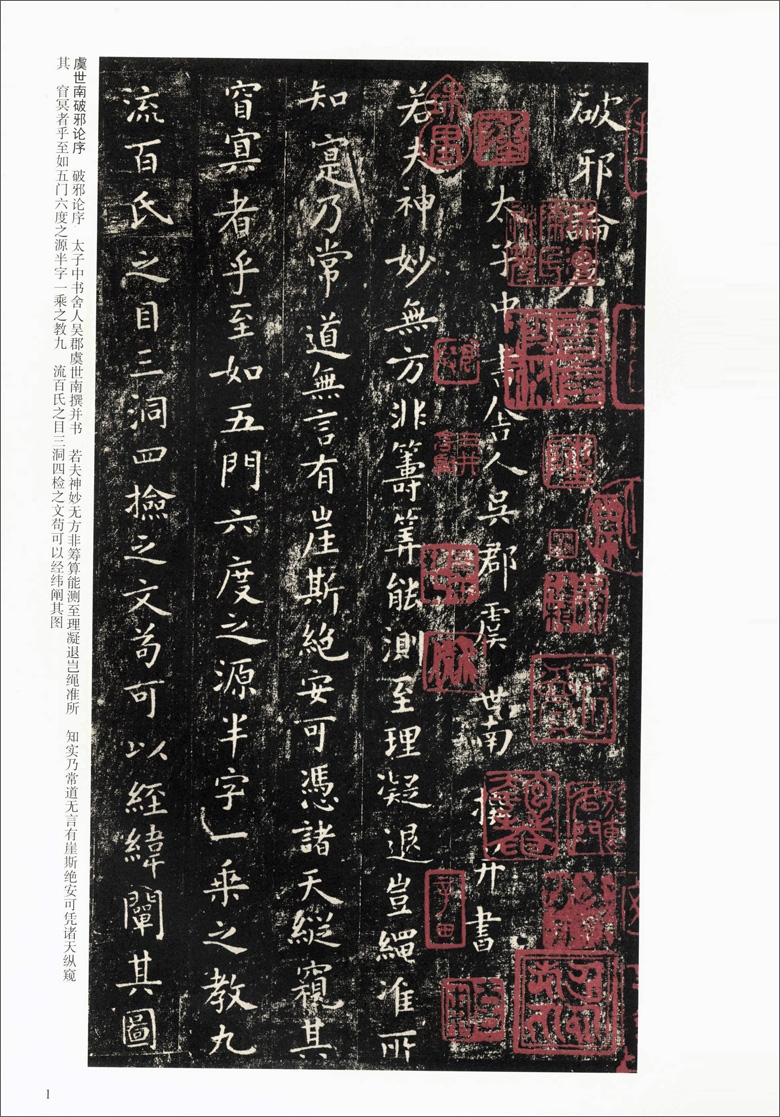 破邪論序
太子中書舍人吳郡虞世南撰并書
若夫神妙無方非籌筭能測至理凝退豈繩准所
知寔乃常道無言有崖斯絕安可憑諸天縱窺其
窅冥者乎至如五門六度之源半字一乘之教九
流百氏之目三洞四撿之文苟可以經緯闡其圖
虞世南破邪论序 破邪论序 太子中书舍人吴郡虞世南撰并书 若夫神妙无方非筹算能测至理凝退岂绳准所 知实乃常道无言有崖斯绝安可凭诸天纵窥
其 窅冥者乎至如五门六度之源半字一乘之教九 流百氏之目三洞四检之文苟可以经纬阐其图
1